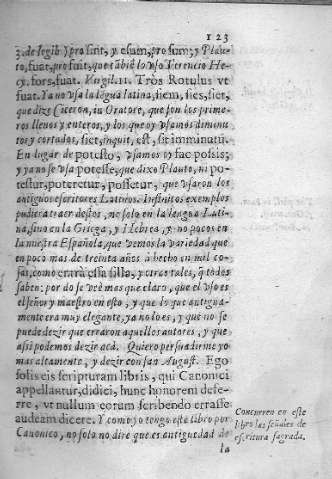 123
3. de legib⁹ prosint, y esum, pro sum; y Plau-
to, fuat, pro sit, que tãbiẽ lo vso Terencio He-
cy. fors, fuat. Vergil. 11. Tros Rotulus ve
fuat. Ya no vsa la lẽgua latina, siem, sies, siet,
que dize Ciceron, in Oratore, que son los prime-
ros llenos y enteros, y los que oy vsamos diminu
tos y cortados, siet, inquit, est, sit imminutũ.
En lugar de potesto, vsamos oy fac possis;
y ya no se vsa potesse, que dixo Plauto, ni po-
testur, poteretur, possetur, que vsaron los
antiguos escritores Latinos. Infinitos exemplos
pudiera traer destos, no solo en la lengua Lati-
na, sino en la Griega, y Hebrea, y no pocos en
la nuestra Española, que vemos la variedad que
en poco mas de treinta años à hecho en mil co-
sas, como entrà essa silla, y otros tales, q̃ todos
saben: por do se vee mas que claro, que el vso es
el señor y maestro en esto, y que lo que antigua-
mente era muy elegante, ya no lo es, y que no se
puede dezir que erraron aquellos autores, y que
assi podemos dezir acà. Quiero persuadirme yo
mas altamente, y dezir con san August. Ego
solis eis scripturam libris, qui Canonici
appellantur, didici, hunc honorem defer-
re, vt nullum eorum scribendo errasse
audeam dicere. Y como yo tengo este libro por
Canonico, no solo no dire que es antiguedad de
la
Concurren en este
libro las señales de
escritura sagrada.